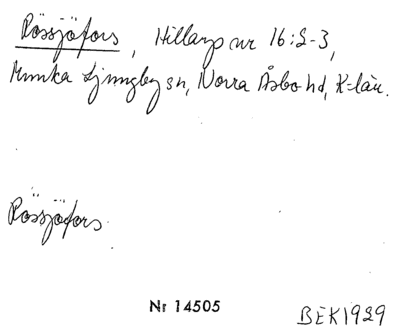 Rössjöfors, Hillarp nr 16:2-3,
Munka Ljungby sn, Norra Åsbo hd, K-län.
Rössjöfors
Nr 14505
BEK1929